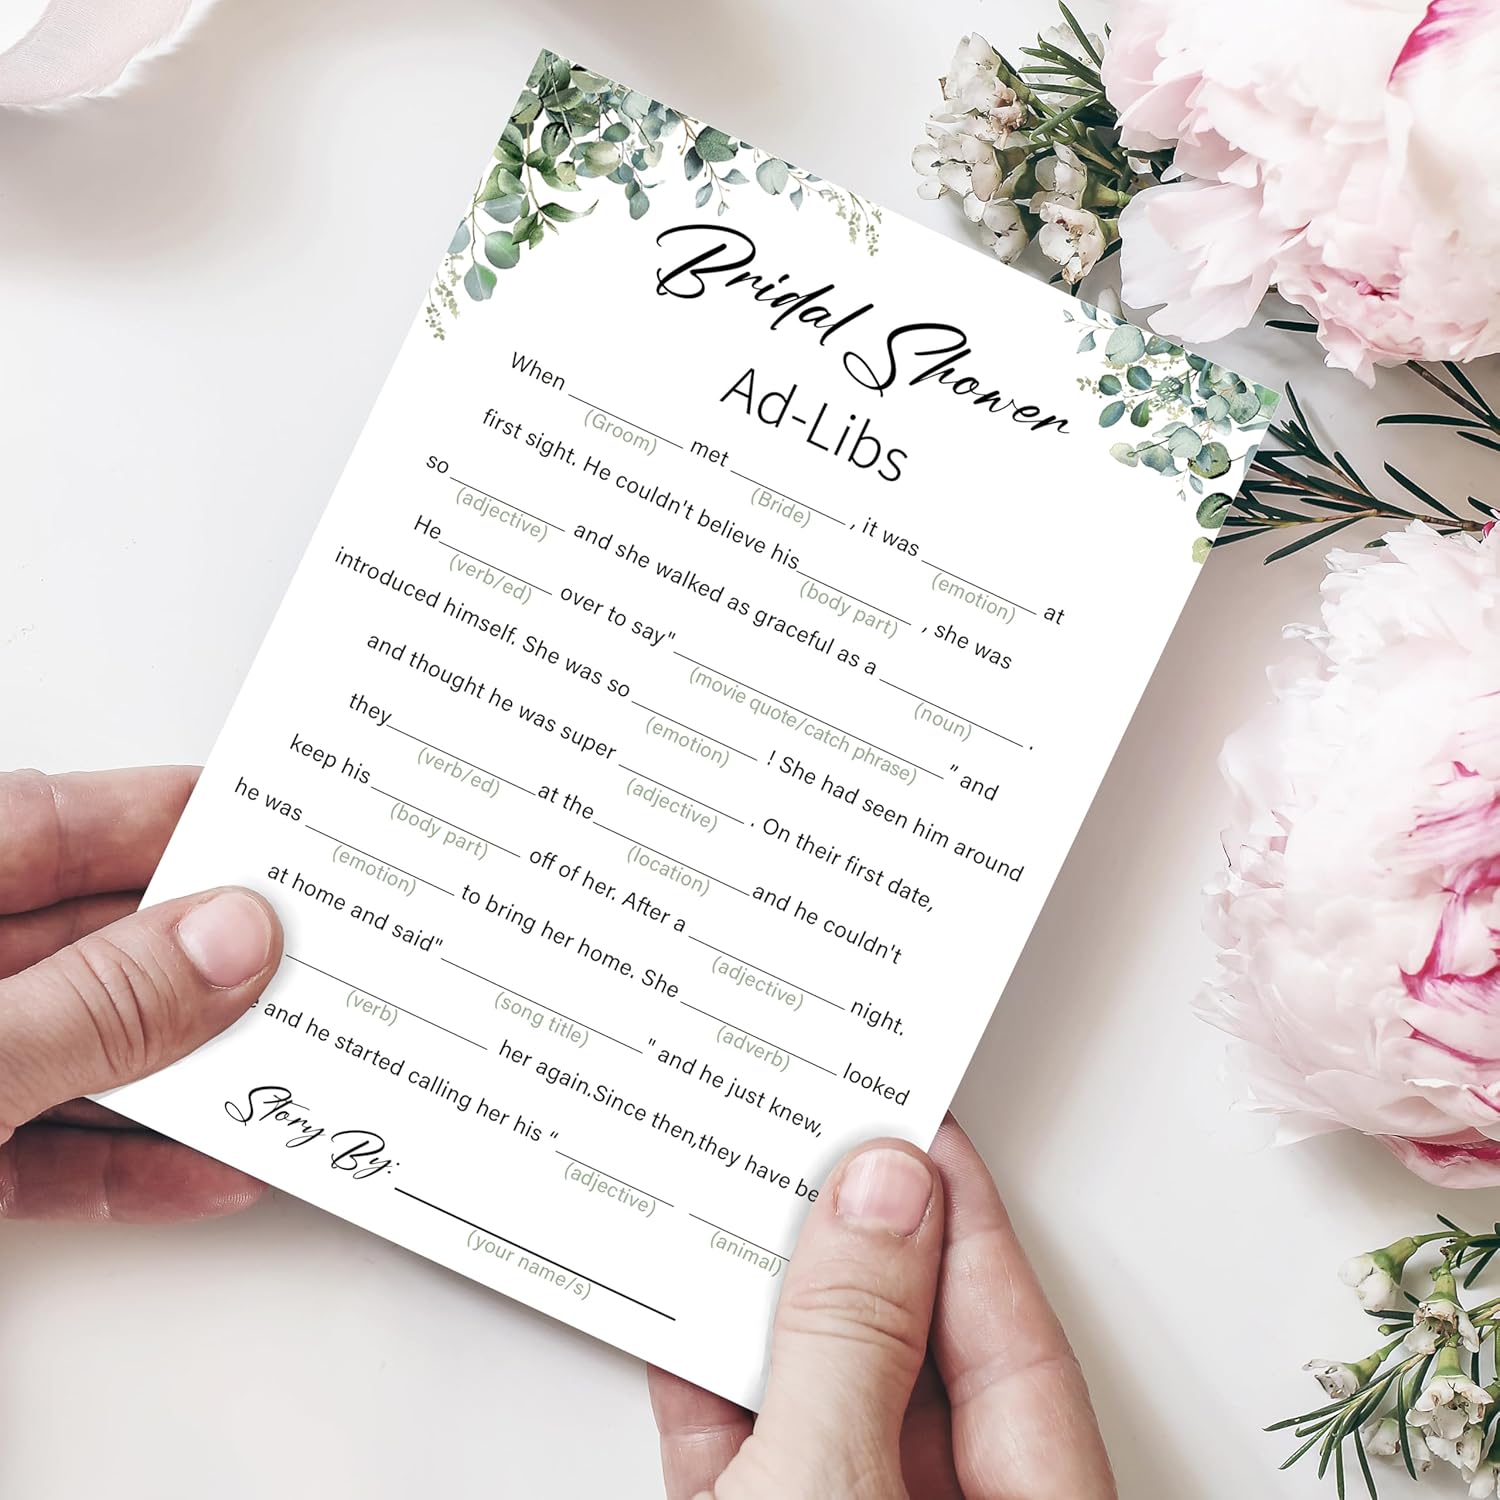 Bridal Shower
Ad-Libs
When ____ met ____ , it was ____ at
(Groom) (Bride) (emotion)
first sight. He couldn't believe his ____ , she was
(body part)
so ____ and she walked as graceful as a ____ .
(adjective) (noun)
He ____ over to say" ____ " and
(verb/ed) (movie quote/catch phrase)
introduced himself. She was so ____ ! She had seen him around
(emotion)
and thought he was super ____ . On their first date,
(adjective)
they ____ at the ____ and he couldn't
(verb/ed) (location)
keep his ____ off of her. After a ____ night.
(body part) (adjective)
he was ____ to bring her home. She ____ looked
(emotion) (adverb)
at home and said" ____ " and he just knew,
(song title)
____ her again.Since then,they have be
(verb)
and he started calling her his " ____ ____
(adjective) (animal)
Story By: ____
(your name/s)